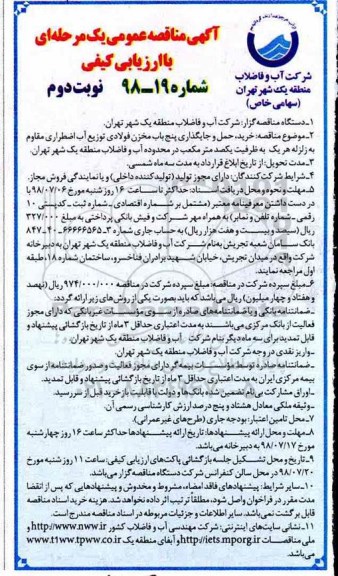 آگهی مناقصه عمومی یک مرحله‌ای
با ارزیابی کیفی
شماره ۱۹-۹۸ نوبت دوم
شرکت آب و فاضلاب
منطقه یک شهر تهران
(سهامی خاص)
۱-دستگاه مناقصه گزار: شرکت آب و فاضلاب منطقه یک شهر تهران.
۲-موضوع مناقصه: خرید، حمل و جایگذاری پنج باب مخزن فولادی توزیع آب اضطراری مقاوم
به زلزله هر یک به ظرفیت یکصد متر مکعب در محدوده آب و فاضلاب منطقه یک شهر تهران.
۳-مدت تحویل: از تاریخ ابلاغ قرارداد به مدت سه ماه شمسی.
۴-شرایط شرکت کنندگان: دارای مجوز تولید (تولیدکننده داخلی) و یا نمایندگی فروش مجاز.
۵-مهلت و نحوه و محل دریافت اسناد: حداکثر تا ساعت ۱۶ روز شنبه مورخ ۹۸/۰۷/۰۶ با
در دست داشتن معرفینامه معتبر (مشتمل بر شماره اقتصادی-شماره ثبت-کدپستی ۱۰
رقمی-شماره تلفن و نمابر) به همراه مهر شرکت و فیش بانکی پرداختی به مبلغ ۳۲۷/۰۰۰
ریال (سیصد و بیست و هفت هزار ریال) به حساب جاری شماره ۳-۶۶۶۶۶۵۶۵-۴۰-۸۴۷
بانک سامان شعبه تجریش به‌نام شرکت آب و فاضلاب منطقه یک شهر تهران به دبیرخانه
شرکت واقع در میدان تجریش، خیابان شهید برادران فناخسرو، ساختمان شماره ۱۸، طبقه
اول مراجعه نمایند.
۶-مبلغ سپرده شرکت در مناقصه: مبلغ سپرده شرکت در مناقصه ۹۷۴/۰۰۰/۰۰۰ ریال (نهصد
و هفتاد و چهار میلیون) ریال می‌باشد که باید بصورت یکی از روش‌های زیر ارائه گردد:
-ضمانتنامه بانکی و یا ضمانتنامه‌های صادره از سوی مؤسسات غیربانکی که دارای مجوز
فعالیت از بانک مرکزی می‌باشند به مدت اعتباری حداقل ۳ ماه از تاریخ بازگشائی پیشنهاد و
قابل تمدید برای سه ماه دیگر بنام شرکت آب و فاضلاب منطقه یک شهر تهران.
-واریز نقدی در وجه شرکت آب و فاضلاب منطقه یک شهر تهران.
-ضمانتنامه صادره توسط مؤسسات بیمه‌گر دارای مجوز فعالیت و صدور ضمانتنامه از سوی
بیمه مرکزی ایران به مدت اعتباری حداقل ۳ ماه از تاریخ بازگشائی پیشنهاد و قابل تمدید.
-اوراق مشارکت بی‌نام تضمین شده بانک‌ها و دولت با قابلیت بازخرید قبل از سررسید.
-وثیقه ملکی معادل هشتاد و پنج درصد ارزش کارشناسی رسمی آن.
۷-محل تامین اعتبار: بودجه جاری (طرح‌های غیرعمرانی).
۸-مهلت و محل ارائه پیشنهادها: تاریخ ارائه پیشنهادها حداکثر ساعت ۱۶ روز چهارشنبه
مورخ ۹۸/۰۷/۱۷ به دبیرخانه می‌باشد.
۹-تاریخ و محل تشکیل جلسه بازگشائی پاکت‌های ارزیابی کیفی: ساعت ۱۱ روز شنبه مورخ
۹۸/۰۷/۲۰ در محل سالن کنفرانس شرکت دستگاه مناقصه گزار می‌باشد.
۱۰-سایر شرایط: پیشنهادهای فاقد امضاء، مشروط و مخدوش و پیشنهادهایی که پس از انقضا
مدت مقرر در فراخوان واصل شود، مطلقاً ترتیب اثر داده نخواهد شد. هزینه خرید اسناد مناقصه
قابل برگشت نمی‌باشد. سایر اطلاعات و جزئیات مربوطه در اسناد مناقصه مندرج است.
۱۱-نشانی سایت‌های اینترنتی: شرکت مهندسی آب و فاضلاب کشور http://www.nww.ir و
ملی مناقصات http://iets.mporg.ir و آبفای منطقه یک www.t1ww.tpww.co.ir
می‌باشد.